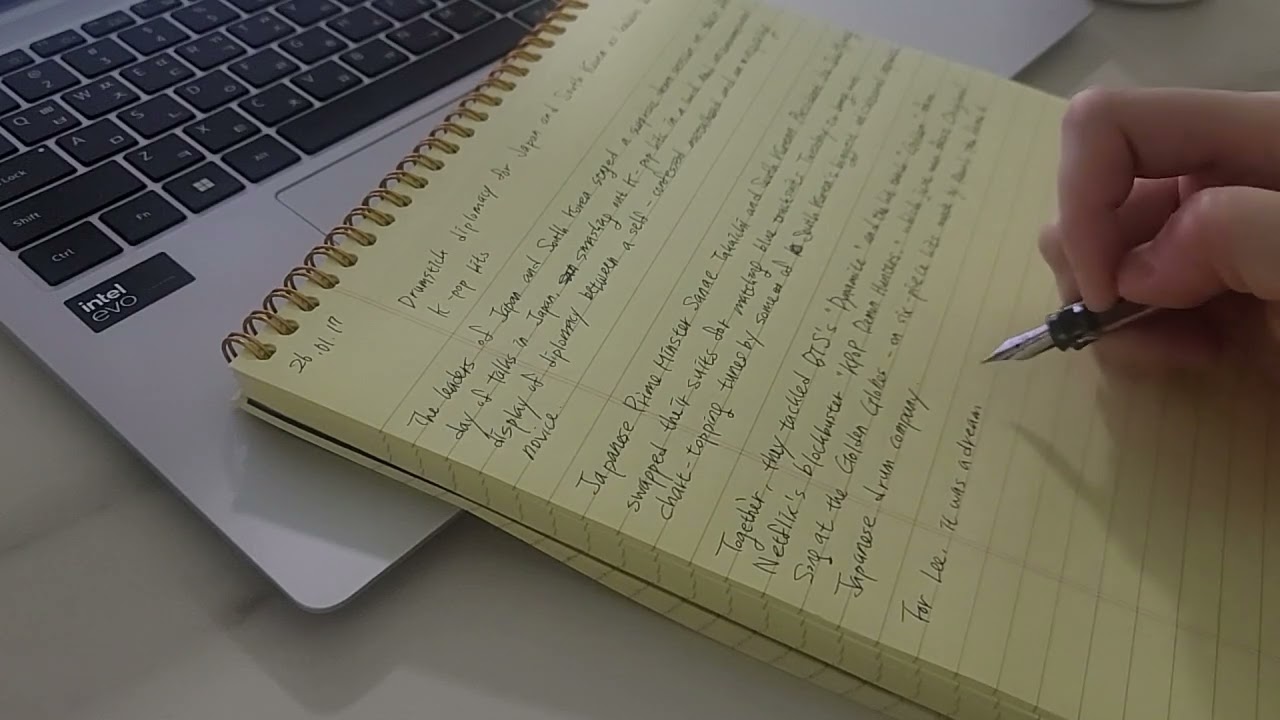 26.01.17
Drumstick diplomacy for Japan and South Korea as leaders
K-pop hits
The leaders of Japan and South Korea staged a surprise
day of talks in Japan, smashing out K-pop hits in a
display of diplomacy between a self-confessed metalhead and an
novice.
Japanese Prime Minister Sanae Takaichi and South Korean President
swapped their suits for matching blue Tuesday to
chart-topping tunes by some of South Korea's biggest
Together, they tackled BTS's "Dynamite" and the hit song "Golden" from
Netflix's blockbuster "KPop Demon Hunters," which won best Original
Song at the Golden Globes - on six-piece kits made by
Japanese drum company.
For Lee, it was a dream
intel
evo
Lock
Shift
Ctrl
Fn
Q
W
A
S
D
Z
X
C
V